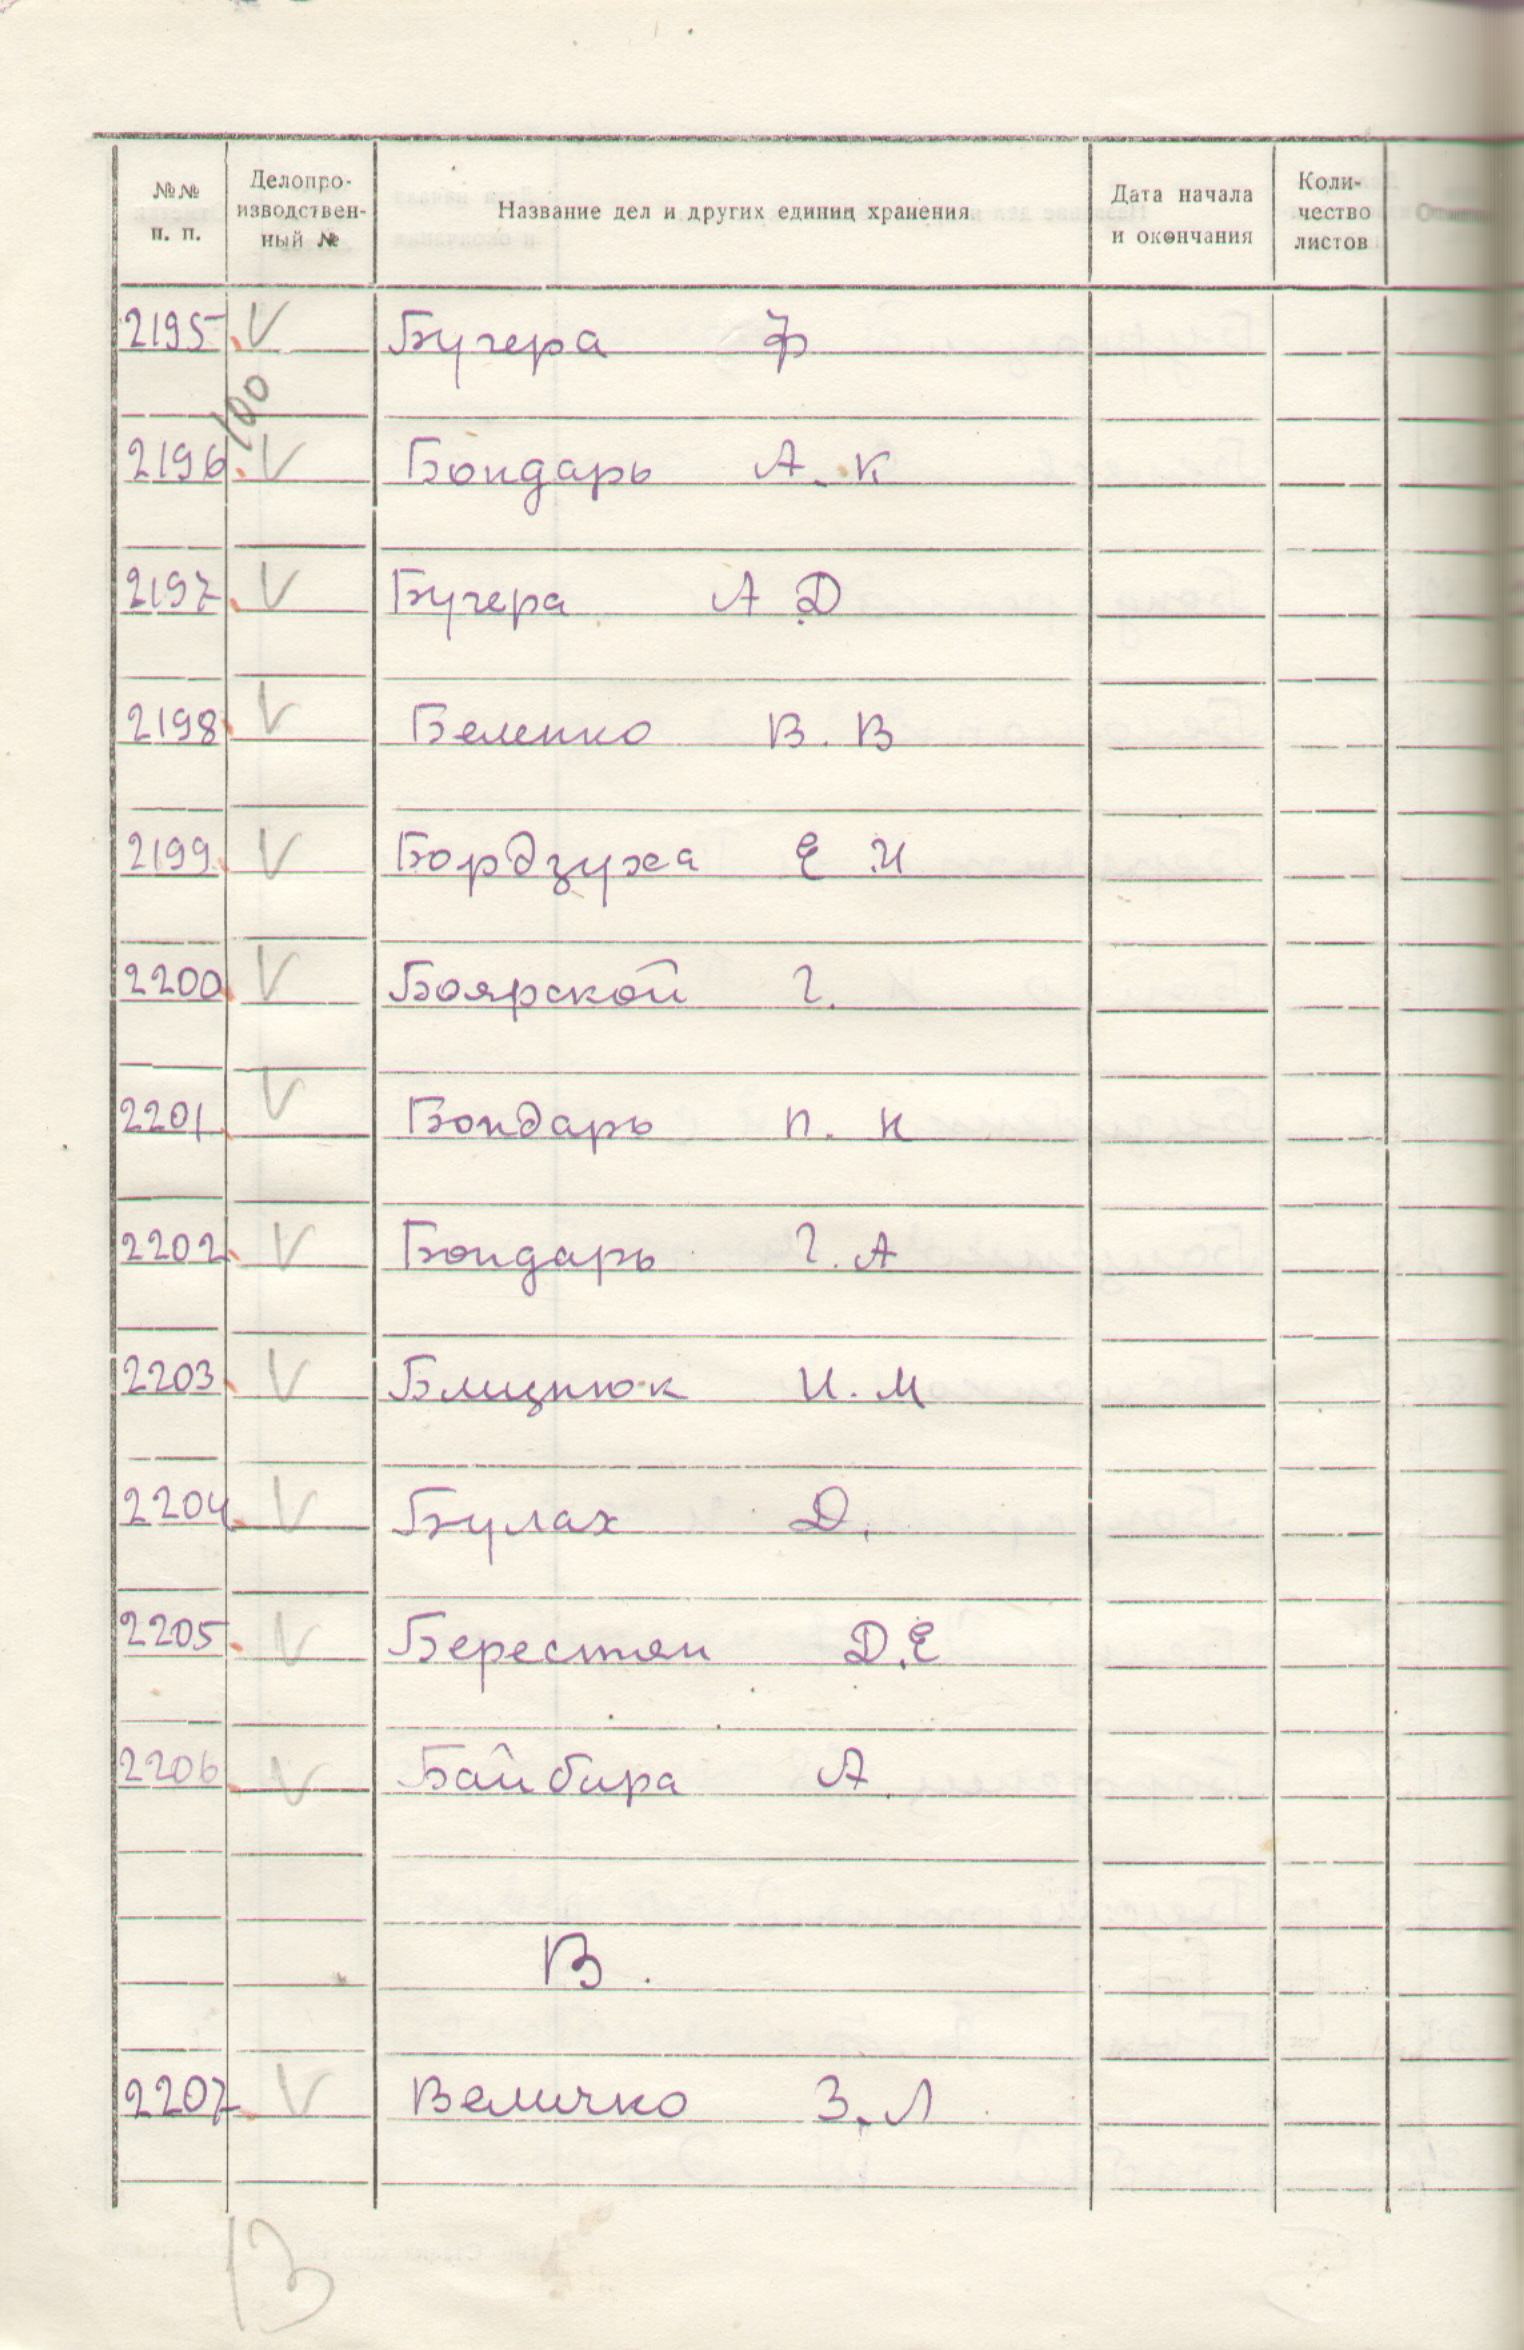 №№ п. п. Делопро-изводствен-ный № Название дел и других единиц хранения Дата начала и окончания Коли-чество листов
2195. V Бучера Ф
100
2196. V Бондарь А. К
2197. V Бучера А Д
2198. V Беленко В. В
2199. V Бордзуха Е И
2200. V Боярской Г.
2201. V Бондарь П. К
2202. V Бондарь Г. А
2203. V Блицнюк И. М
2204. V Булах Д.
2205. V Берестян Д. Е
2206. V Байбира А.
В.
2207. V Величко З. Л
13